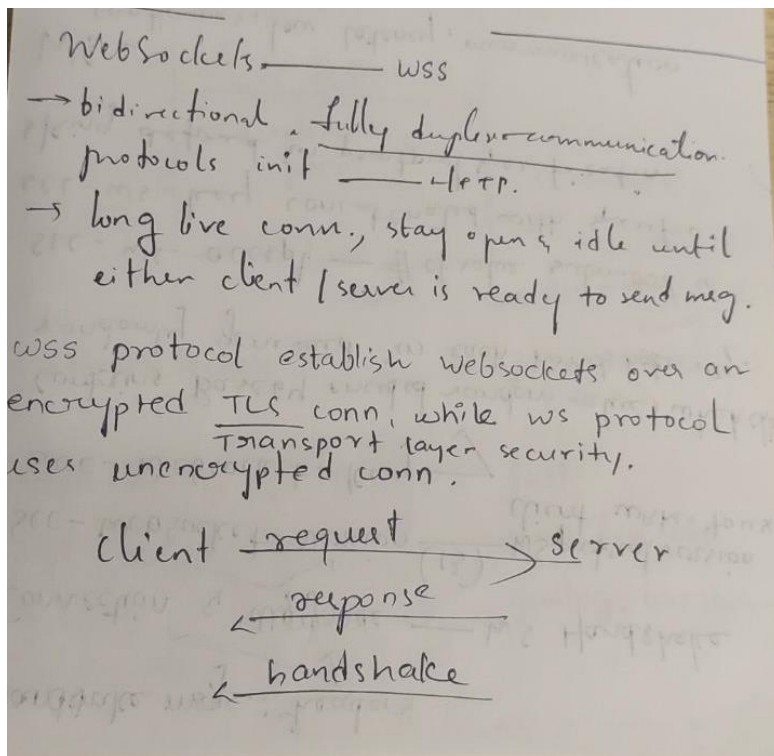 Websockets. —— wss
→ bidirectional . fully duplex-communication.
protocols init —— HTTP.
→ long live conn., stay open & idle until
either client / server is ready to send msg.
wss protocol establish websockets over an
encrypted TLS conn, while ws protocol
Transport layer security.
uses unencrypted conn.
client request server
response
handshake